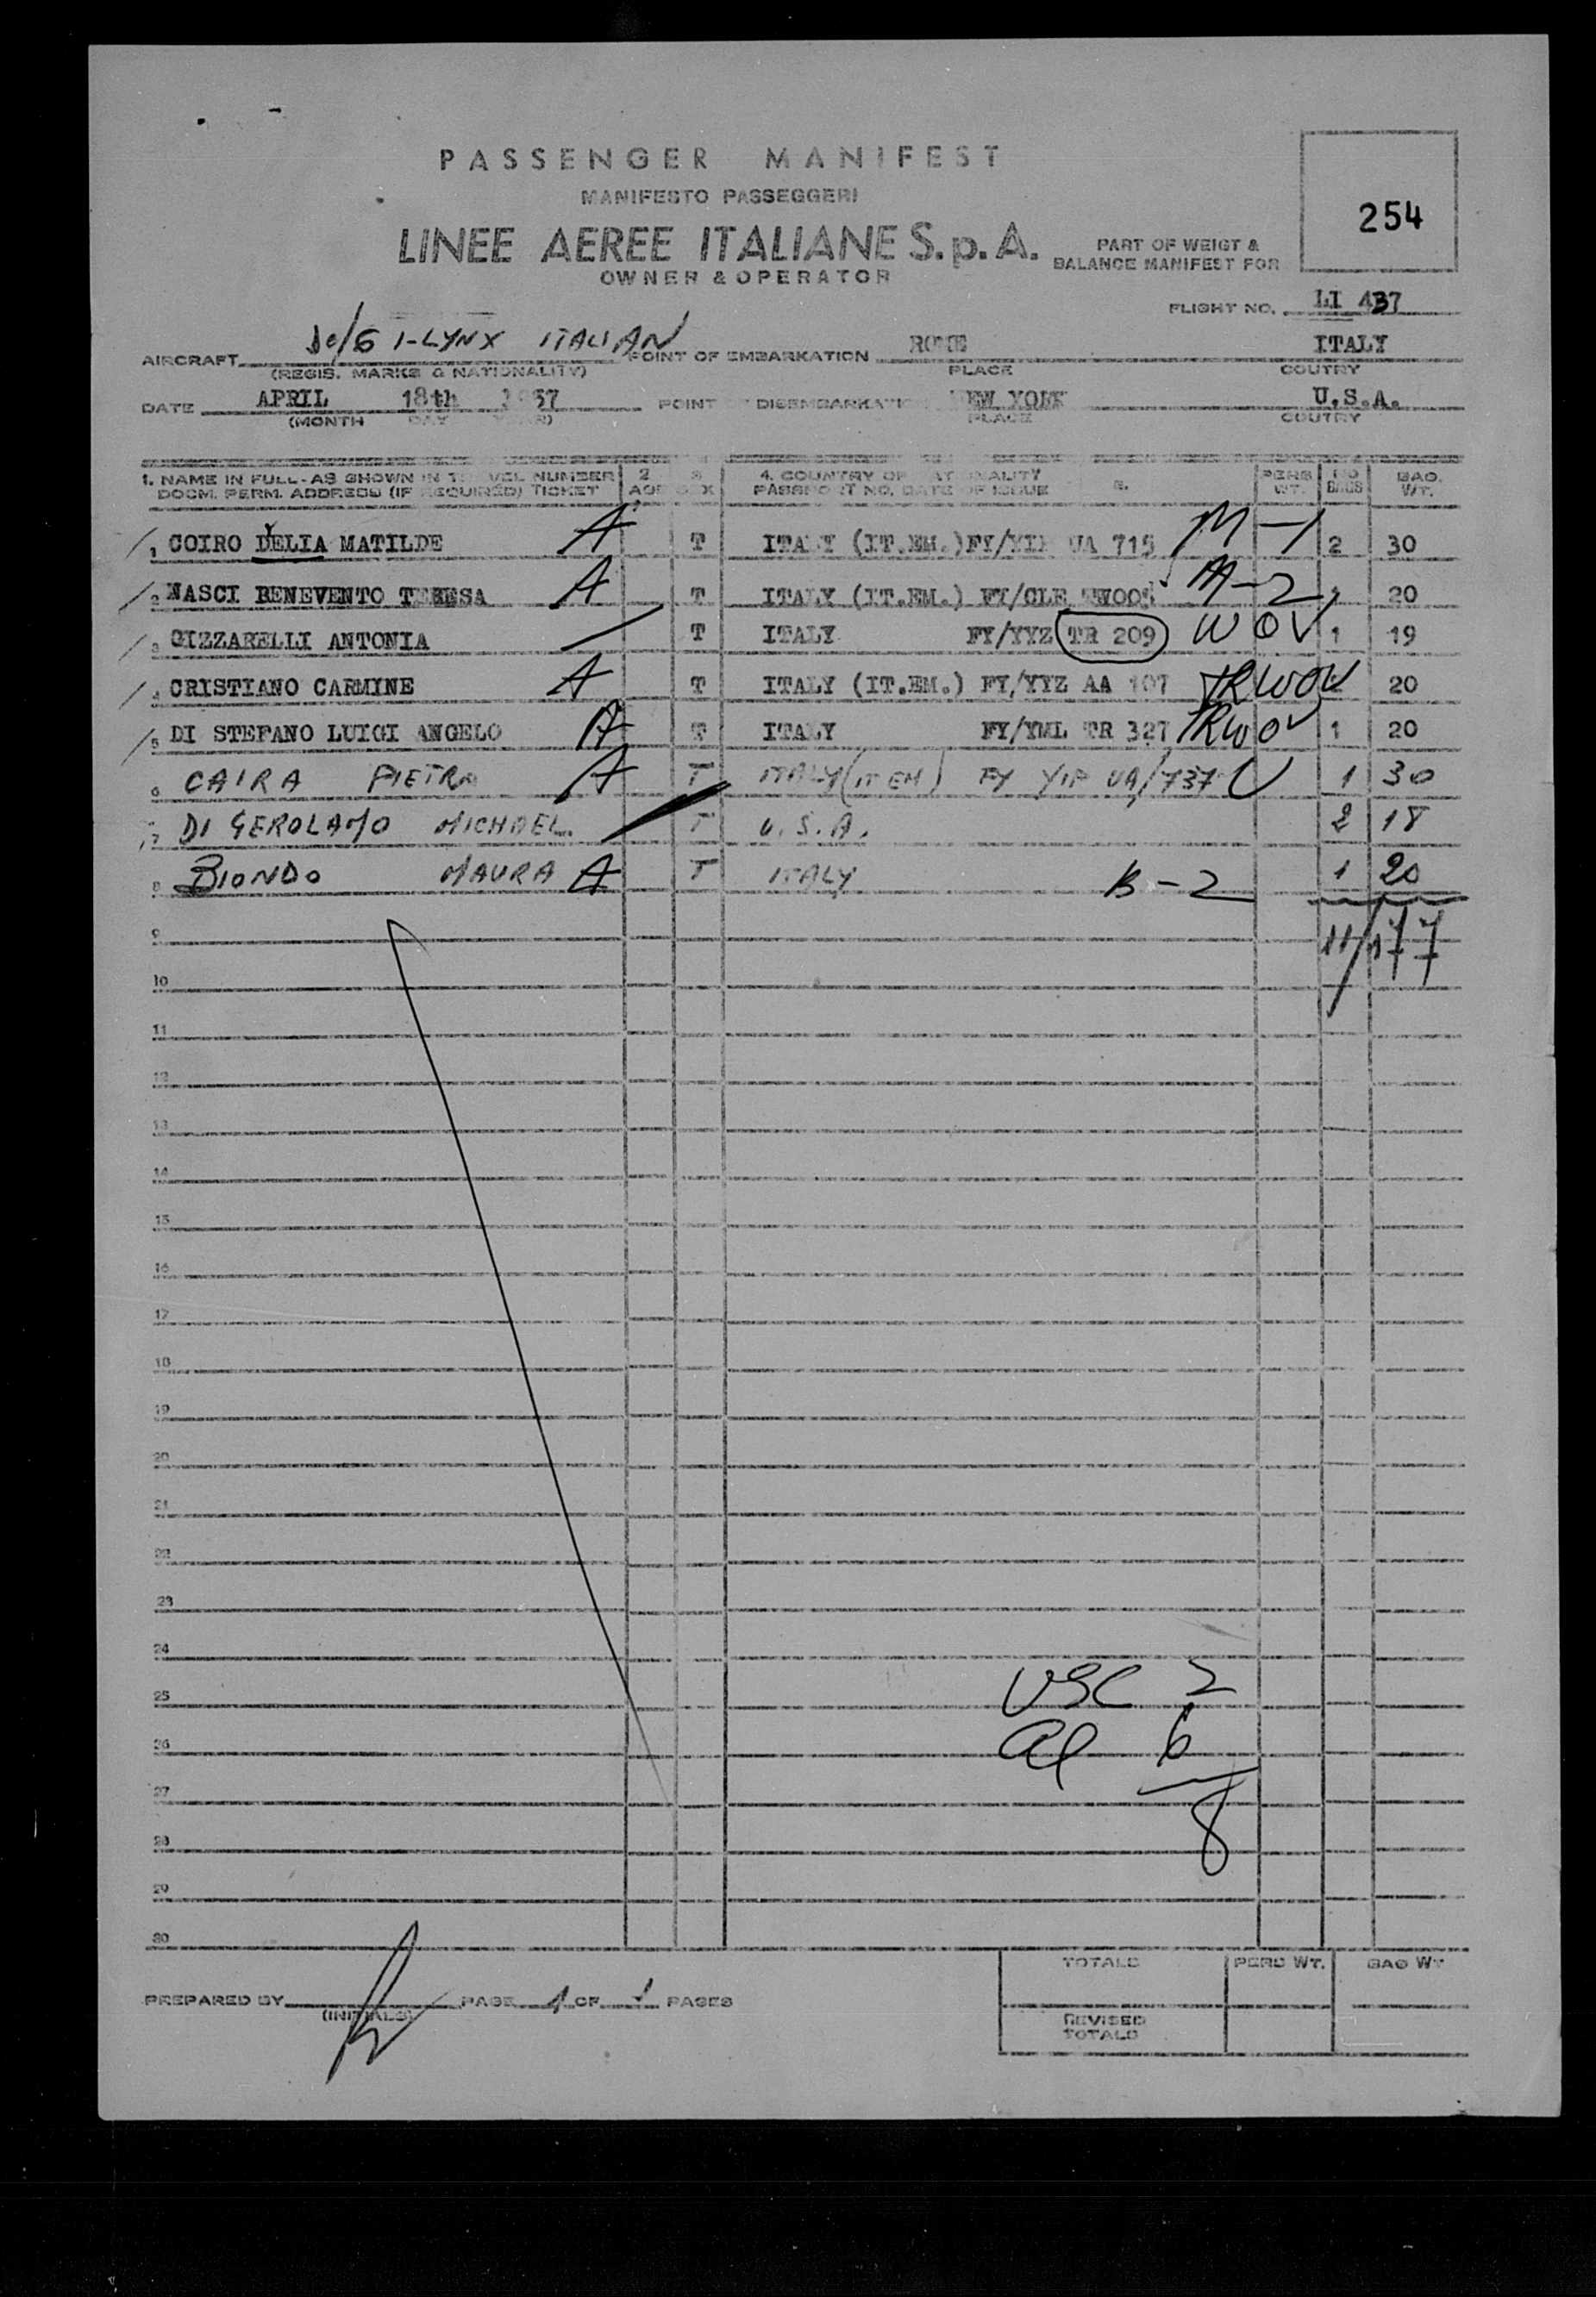 PASSENGER MANIFEST
MANIFESTO PASSEGGERI
254
LINEE AEREE ITALIANE S.p.A.
PART OF WEIGT &
BALANCE MANIFEST FOR
OWNER & OPERATOR
FLIGHT NO. LI 437
AIRCRAFT I-LYNX ITALIAN POINT OF EMBARKATION ROME ITALY
(REGIS. MARKS & NATIONALITY) PLACE COUTRY
DATE APRIL 18th 1957 POINT DISEMBARKATI NEW YORK U.S.A.
(MONTH DAY YEAR) PLACE COUTRY
1. NAME IN FULL-AS SHOWN IN TRAVEL NUMBER 2 3 4. COUNTRY OF NATIONALITY 5. PERS NO BAG.
DOCM. PERM. ADDRESS (IF REQUIRED) TICKET AGE SEX PASSPORT NO. DATE OF ISSUE WT. BAGS WT.
1 COIRO DELIA MATILDE A T ITALY (IT.EM.) FY/YIP UA 715 M-1 2 30
2 NASCI BENEVENTO TERESA A T ITALY (IT.EM.) FY/CLE TW005 M-2 20
3 GIZZARELLI ANTONIA T ITALY FY/YYZ TR 209 WOV 1 19
4 CRISTIANO CARMINE A T ITALY (IT.EM.) FY/YYZ AA 107 TRWOV 20
5 DI STEFANO LUIGI ANGELO A T ITALY FY/YML TR 327 TRWOV 1 20
6 CAIRA PIETRO A T ITALY (IT EM) FY YIP UA/737 1 30
7 DI GEROLAMO MICHAEL T U.S.A. 2 18
8 BIONDO MAURA A T ITALY B-2 1 20
9 11/177
10
11
12
13
14
15
16
17
18
19
20
21
22
23
24
25 USC 2
26 al 6
27 8
28
29
30
TOTALS PERS WT. BAG WT
PREPARED BY PAGE 1 OF 1 PAGES
(INITIALS)
REVISED
TOTALS